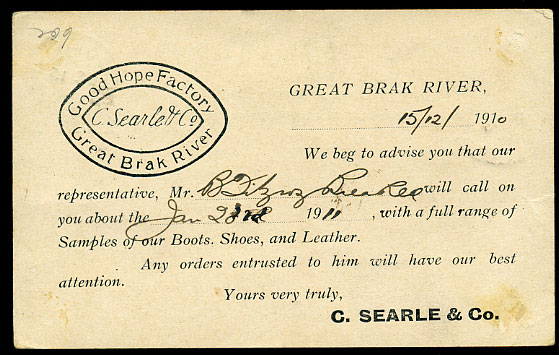 209
Good Hope Factory
C Searle & Co
Great Brak River
GREAT BRAK RIVER,
15/12/ 1910
We beg to advise you that our
representative, Mr. B will call on
you about the Jan 1911, with a full range of
Samples of our Boots. Shoes, and Leather.
Any orders entrusted to him will have our best
attention.
Yours very truly,
C. SEARLE & Co.